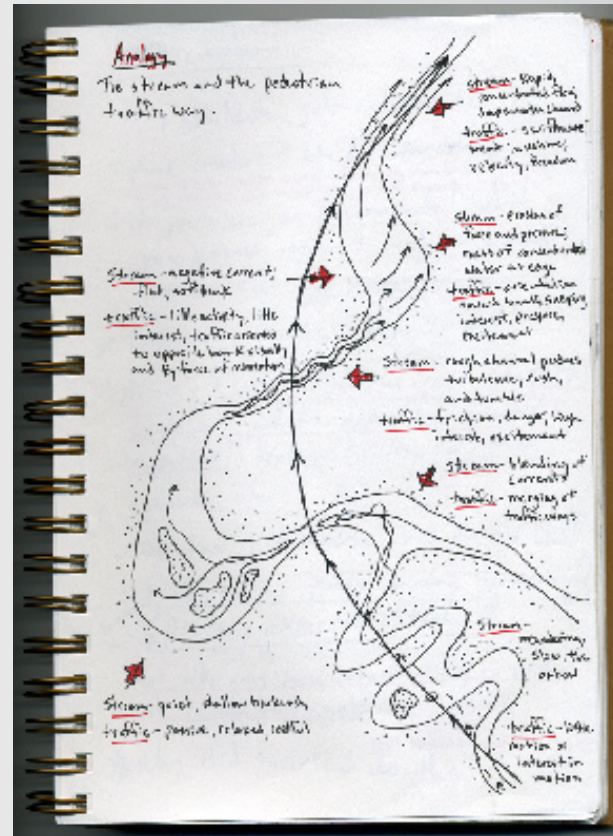 Analogy
The stream and the pedestrian
traffic way.
stream - rapid,
concentrated flow,
traffic - swift move-
ment,
velocity, freedom
stream - erosion of
force and pressure,
most of concentrated
water at edge
traffic - orientation
towards bank,
interest, pressure,
excitement
stream - negative current,
flat, soft bank
traffic - little activity, little
interest, traffic oriented
to opposite bank visually
and by force of momentum
stream - rough channel produces
turbulence, rush,
and tumble
traffic - friction, danger, large
interest, excitement
stream - blending of
currents
traffic - merging of
trafficways
stream -
meandering,
slow,
traffic - little
motion or
interest in
motion
stream - quiet, shallow backwash
traffic - passive, relaxed, restful